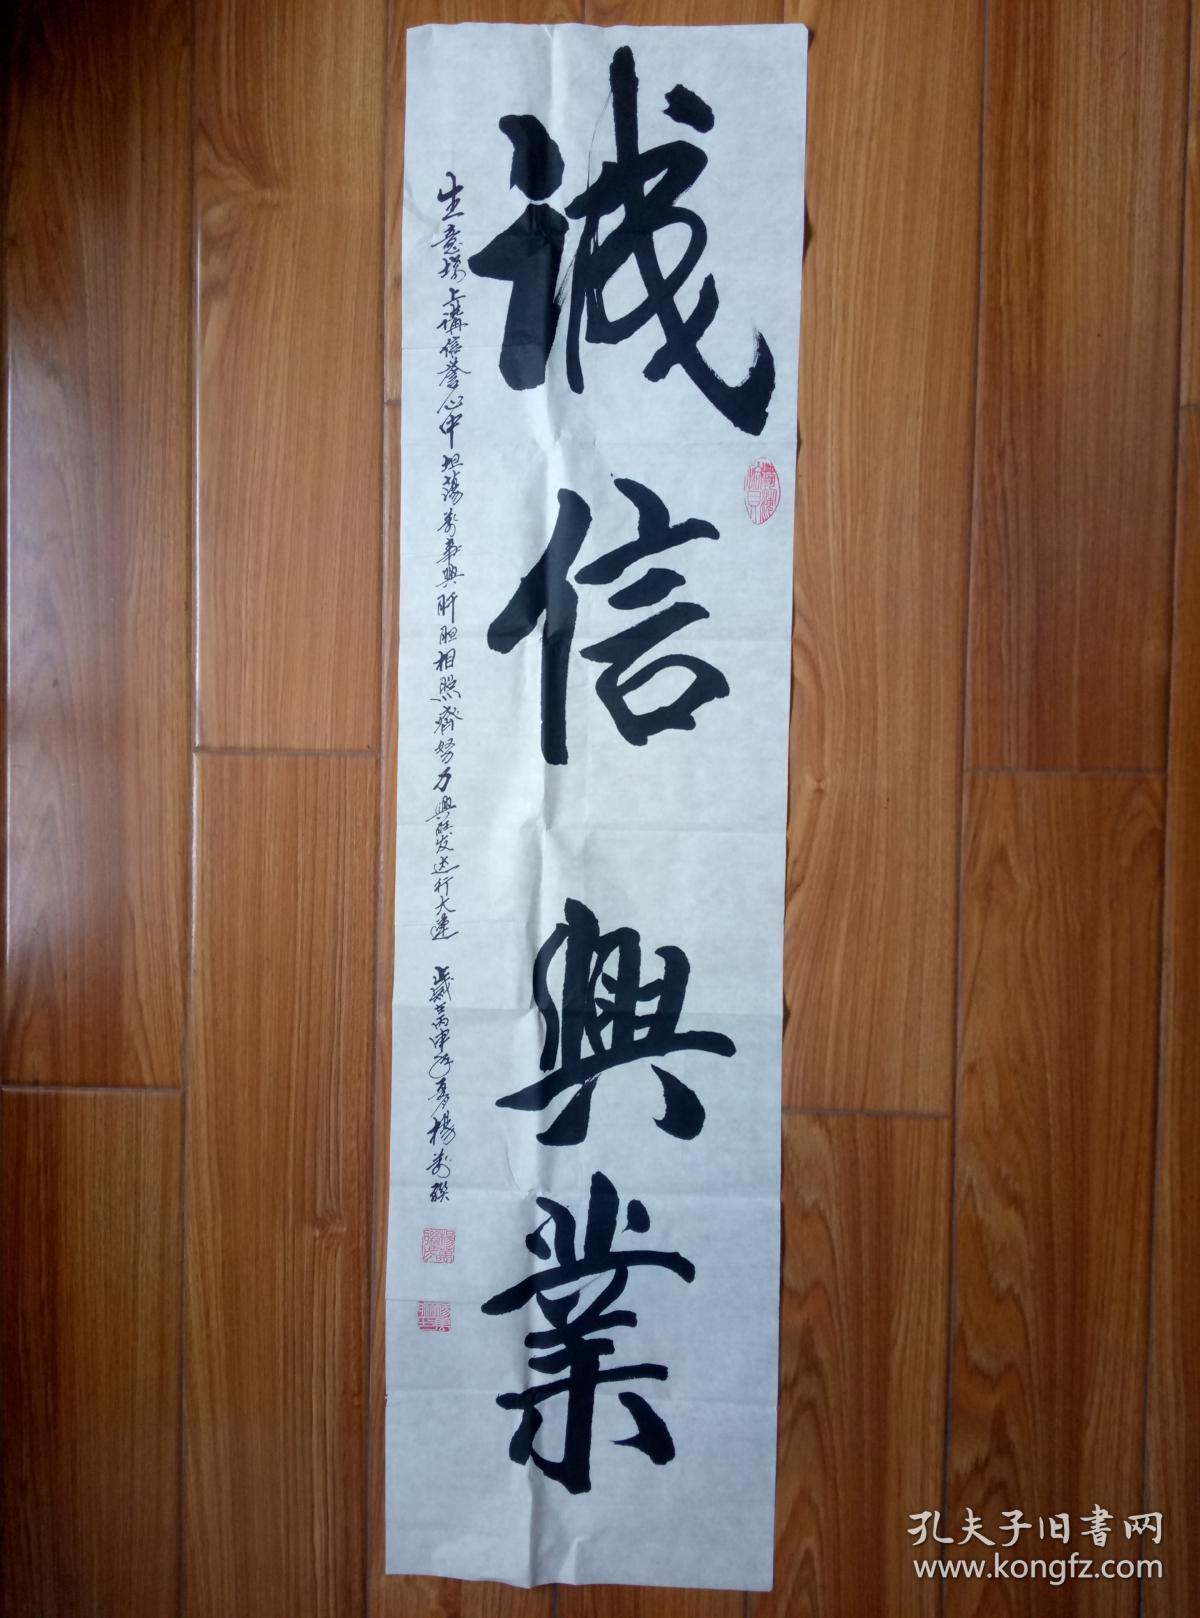 诚信興業
生意場上講信誉心中坦蕩萬事興肝胆相照齊努力興旺发达行大運 歲在丙申年夏楊萬聚
孔夫子旧書网
www.kongfz.com